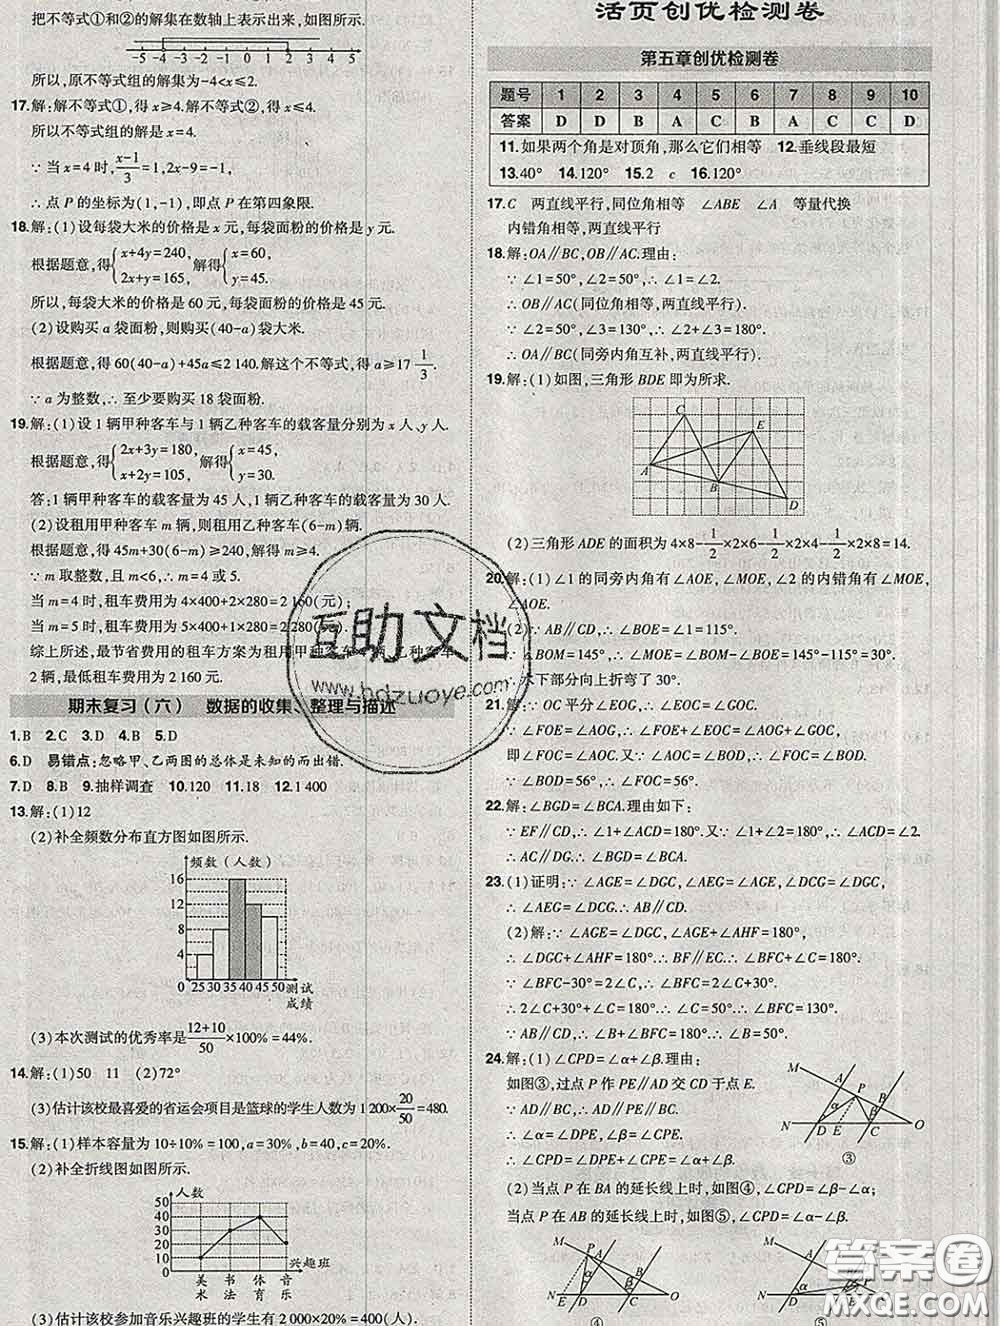 把不等式①和②的解集在数轴上表示出来,如图所示.
-5 -4 -3 -2 -1 0 1 2 3 4 5
所以,原不等式组的解集为-4<x≤2.
17.解:解不等式①,得x≥4.解不等式②,得x≤4.
所以不等式组的解是x=4.
∵当x=4时,(x-1)/3=1,2x-9=-1,
∴点P的坐标为(1,-1),即点P在第四象限.
18.解:(1)设每袋大米的价格是x元,每袋面粉的价格是y元.
根据题意,得{x+4y=240, 2x+y=165, 解得{x=60, y=45.
所以,每袋大米的价格是60元,每袋面粉的价格是45元.
(2)设购买a袋面粉,则购买(40-a)袋大米.
根据题意,得60(40-a)+45a≤2 140.解这个不等式,得a≥17 1/3.
∵a为整数,∴至少要购买18袋面粉.
19.解:(1)设1辆甲种客车与1辆乙种客车的载客量分别为x人、y人.
根据题意,得{2x+3y=180, x+2y=105, 解得{x=45, y=30.
答:1辆甲种客车的载客量为45人,1辆乙种客车的载客量为30人.
(2)设租用甲种客车m辆,则租用乙种客车(6-m)辆.
根据题意,得45m+30(6-m)≥240,解得m≥4.
∵m取整数,且m<6,∴m=4或5.
当m=4时,租车费用为4×400+2×280=2 160(元);
当m=5时,租车费用为5×400+1×280=2 280(元).
综上所述,最节省费用的租车方案为租用甲种客车4辆,乙种客车
2辆,最低租车费用为2 160元.
期末复习(六) 数据的收集、整理与描述
1.B 2.C 3.D 4.B 5.D
6.D 易错点:忽略甲、乙两图的总体是未知的而出错.
7.D 8.B 9.抽样调查 10.120 11.18 12.1 400
13.解:(1)12
(2)补全频数分布直方图如图所示.
频数(人数)
16
12
8
4
0 25 30 35 40 45 50 测试
成绩
(3)本次测试的优秀率是(12+10)/50×100%=44%.
14.解:(1)50 11 (2)72°
(3)估计该校最喜爱的省运会项目是篮球的学生人数为1 200×20/50=480.
15.解:(1)样本容量为10÷10%=100,a=30%,b=40,c=20%.
(2)补全折线图如图所示.
人数
50
40
30
20
10
0
美术 书法 体育 音乐 兴趣班
(3)估计该校参加音乐兴趣班的学生有2 000×20%=400(人).
活页创优检测卷
第五章创优检测卷
题号 1 2 3 4 5 6 7 8 9 10
答案 D D B A C B A C C D
11.如果两个角是对顶角,那么它们相等 12.垂线段最短
13.40° 14.120° 15.2 c 16.120°
17.C 两直线平行,同位角相等 ∠ABE ∠A 等量代换
内错角相等,两直线平行
18.解:OA∥BC,OB∥AC.理由:
∵∠1=50°,∠2=50°,∴∠1=∠2.
∴OB∥AC(同位角相等,两直线平行).
∵∠2=50°,∠3=130°,∴∠2+∠3=180°.
∴OA∥BC(同旁内角互补,两直线平行).
19.解:(1)如图,三角形BDE即为所求.
C
E
A
B
D
(2)三角形ADE的面积为4×8-1/2×2×6-1/2×2×4-1/2×2×8=14.
20.解:(1)∠1的同旁内角有∠AOE,∠MOE,∠2的内错角有∠MOE,
∠AOE.
(2)∵AB∥CD,∴∠BOE=∠1=115°.
∵∠BOM=145°,∴∠MOE=∠BOM-∠BOE=30°.
∴水下部分向上折弯了30°.
21.解:∵OC平分∠EOG,∴∠EOC=∠GOC.
∵∠FOE=∠AOG,∴∠FOE+∠EOC=∠AOG+∠GOC,
即∠FOC=∠AOC.又∵∠AOC=∠BOD,∴∠FOC=∠BOD.
∵∠BOD=56°,∴∠FOC=56°.
22.解:∠BGD=∠BCA.理由如下:
∵EF∥CD,∴∠1+∠ACD=180°.又∵∠1+∠2=180°,∴∠ACD=∠2.
∴AC∥DG.∴∠BGD=∠BCA.
23.(1)证明:∵∠AGE=∠DGC,∠AEG=∠AGE,∠C=∠DGC,
∴∠AEG=∠C.∴AB∥CD.
(2)解:∵∠AGE=∠DGC,∠AGE+∠AHF=180°,
∴∠DGC+∠AHF=180°.∴BF∥EC.∴∠B+∠BFC=180°.
∵∠BFC-30°=2∠C,∴∠BFC=2∠C+30°.
∴2∠C+30°+∠C=180°.∴∠C=50°.∴∠BFC=130°.
∵AB∥CD,∴∠B+∠BFC=180°.∴∠B=50°.
24.解:(1)∠CPD=∠α+∠β.理由:
如图③,过点P作PE∥AD交CD于点E.
∵AD∥BC,∴AD∥PE∥BC.
∴∠α=∠DPE,∠β=∠CPE.
∴∠CPD=∠DPE+∠CPE=∠α+∠β.
M A P B N D E C O α β
③
(2)当点P在BA的延长线上时,如图④,∠CPD=∠β-∠α;
当点P在AB的延长线上时,如图⑤,∠CPD=∠α-∠β.
④
⑤
互助文档
www.hdzuoye.com
答案圈
MXQE.COM